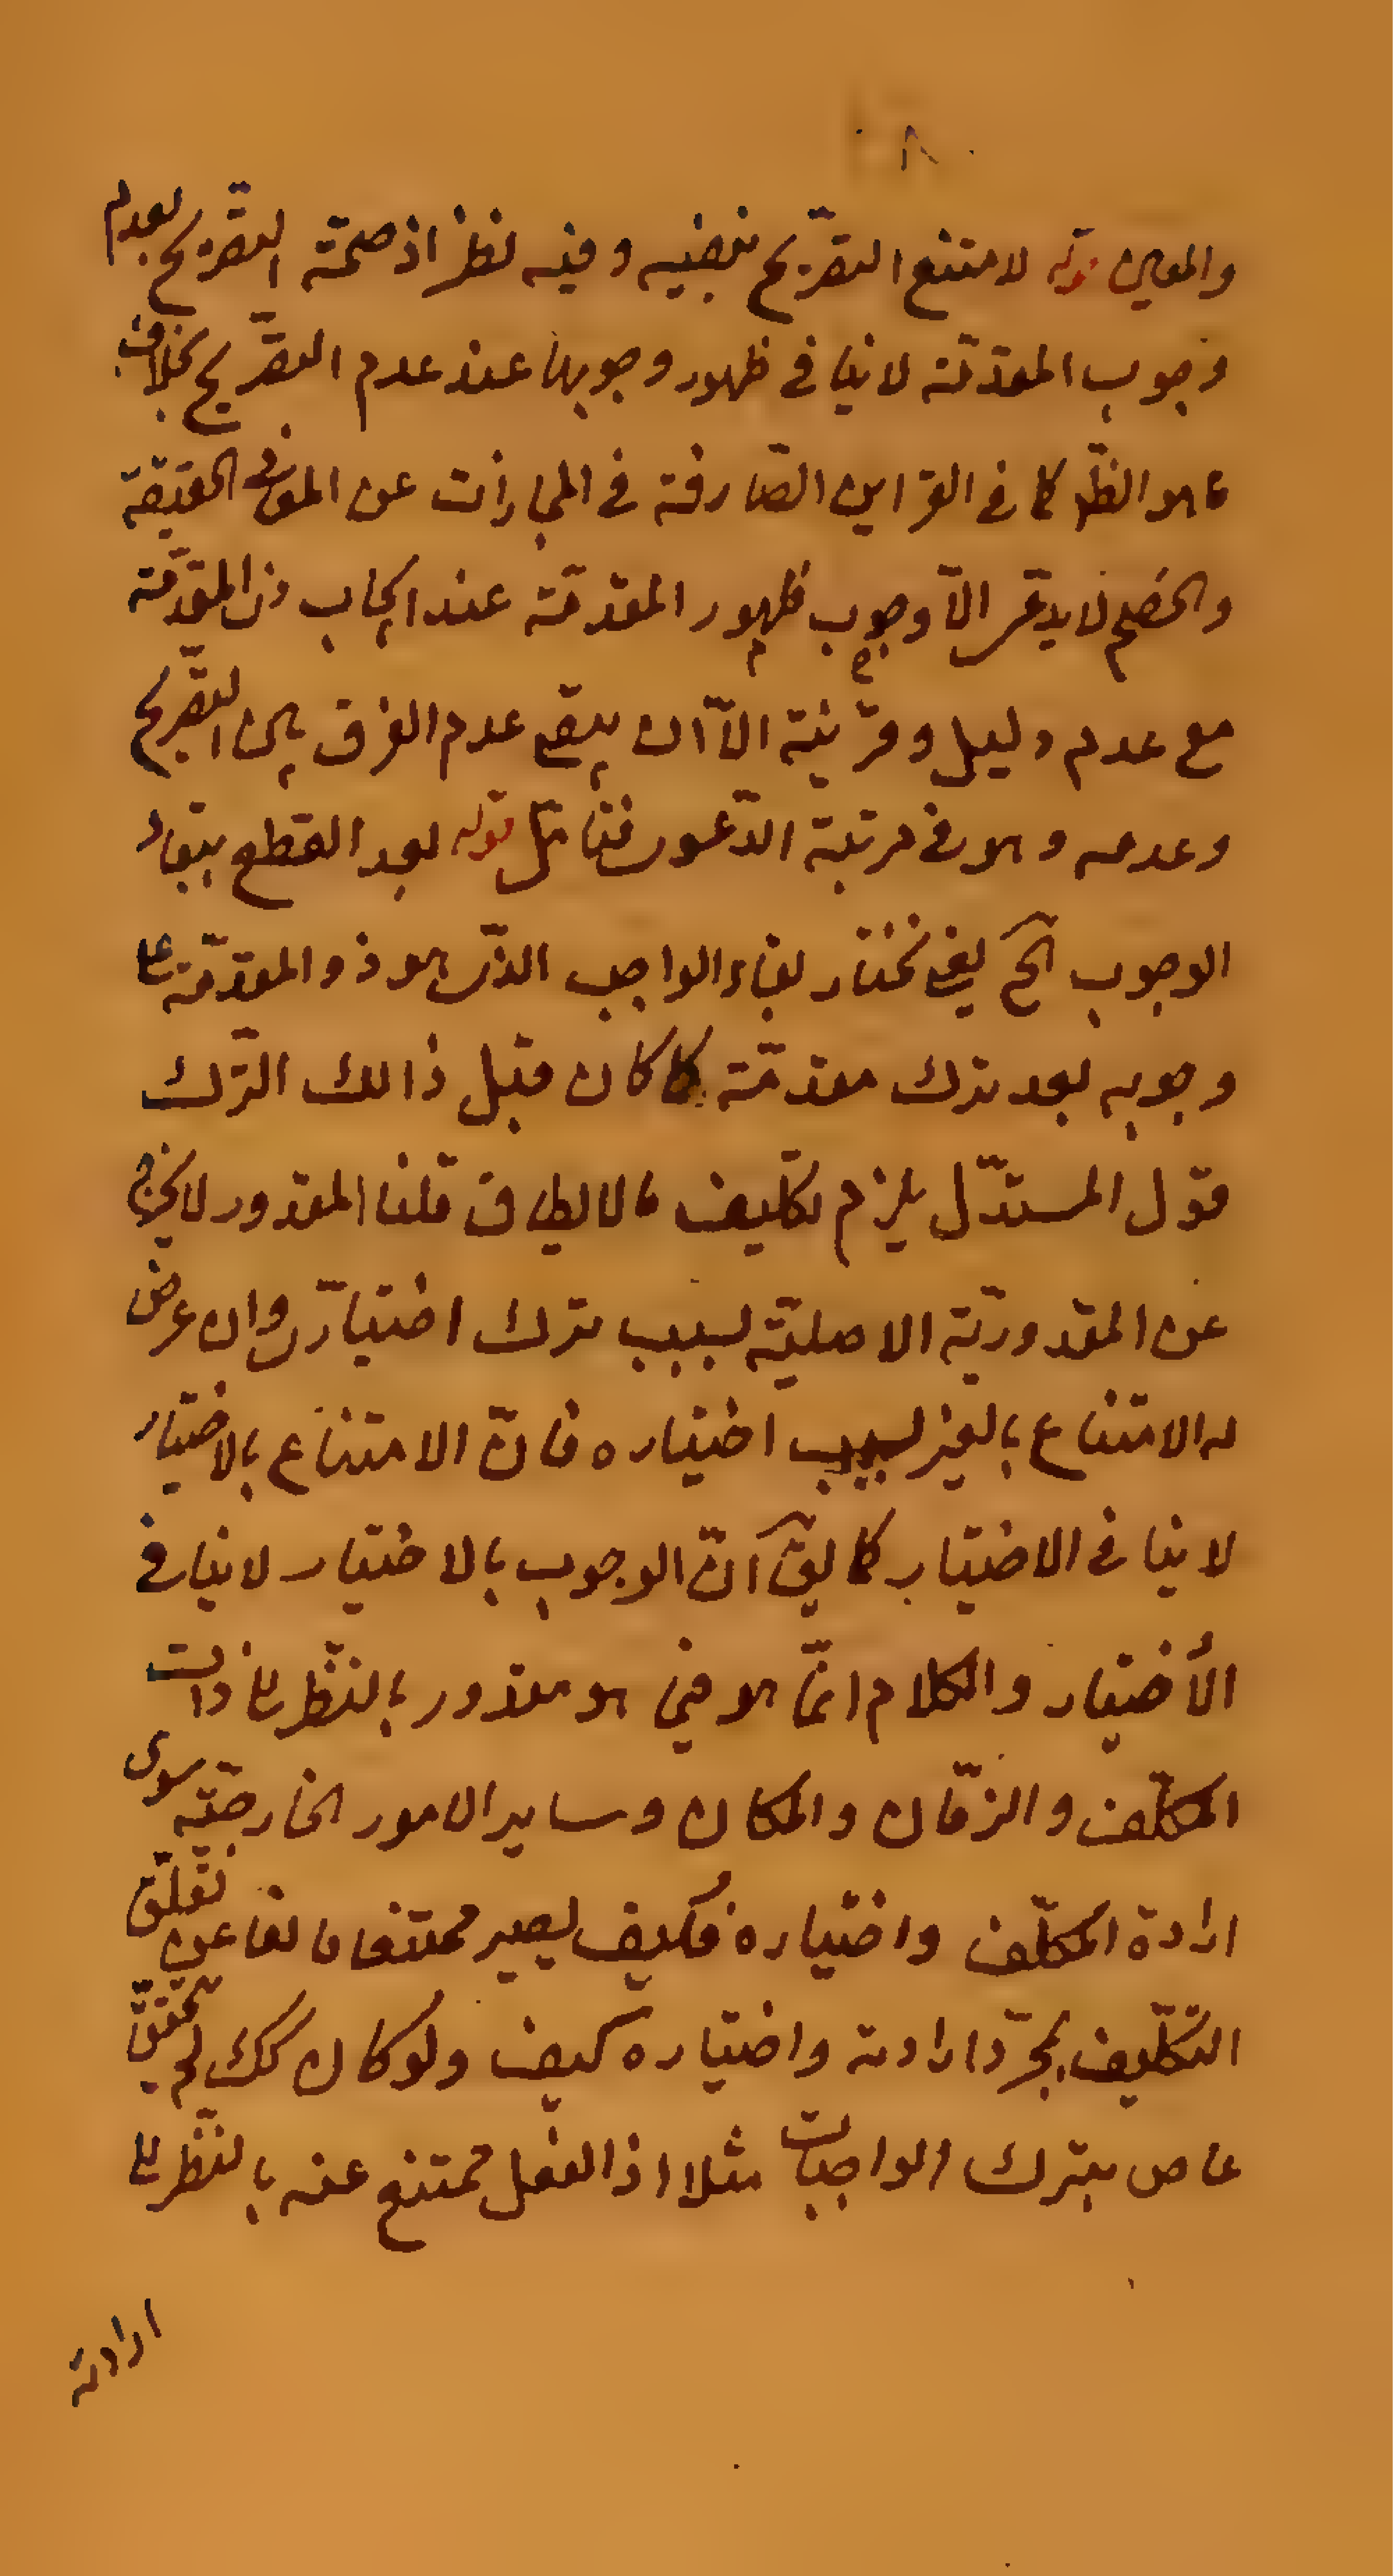 والمعين قوله لامتنع التصريح بنفيه وفيه نظر اذ صحّة التصريح بعدم
وجوب المقدّمة لا ينافى ظهور وجوبها عند عدم التصريح بخلاف
ما هو الظّ كما فى القراين الصّارفة فى المجازات عن المعنى الحقيقة
والخصم لا يدعى الّا وجوب ظهور المقدّمة عند ايجاب ذى المقدّمة
مع عدم دليل وقرينة الّا ان يبقى عدم الفرق بين التصريح
وعدمه وهو فى مرتبة الدّعوى فتامّل قوله بعد القطع ببقاء
الوجوب الخ يعنى نختار بقاء الواجب الذّى هو ذو المقدّمة على
وجوبه بعد ترك مقدّمة كما كان قبل ذالك الترك
قول المستدّل يلزم تكليف ما لا يطاق قلنا المقدور لا يخرج
عن المقدوريّة الاصليّة بسبب ترك اختيارى وان عرض
له الامتناع بالغير بسبب اختياره فانّ الامتناع بالاختيار
لا ينافى الاختيار كما يقّ انّ الوجوب بالاختيار لا ينافى
الأختيار والكلام انّما هو فى هو مقدور بالنّظر الى ذات
المكلّف والزّمان والمكان وساير الامور الخارجيّة سوى
ارادة المكلّف واختياره فكيف يصير ممتنعا مانعا عن تعلّق
التكليف بمجرّد ارادته واختياره كيف ولو كان كك لم يتحقق
عاص بترك الواجبات مثلا اذ الفعل ممتنع عنه بالنّظر الى
ارادته